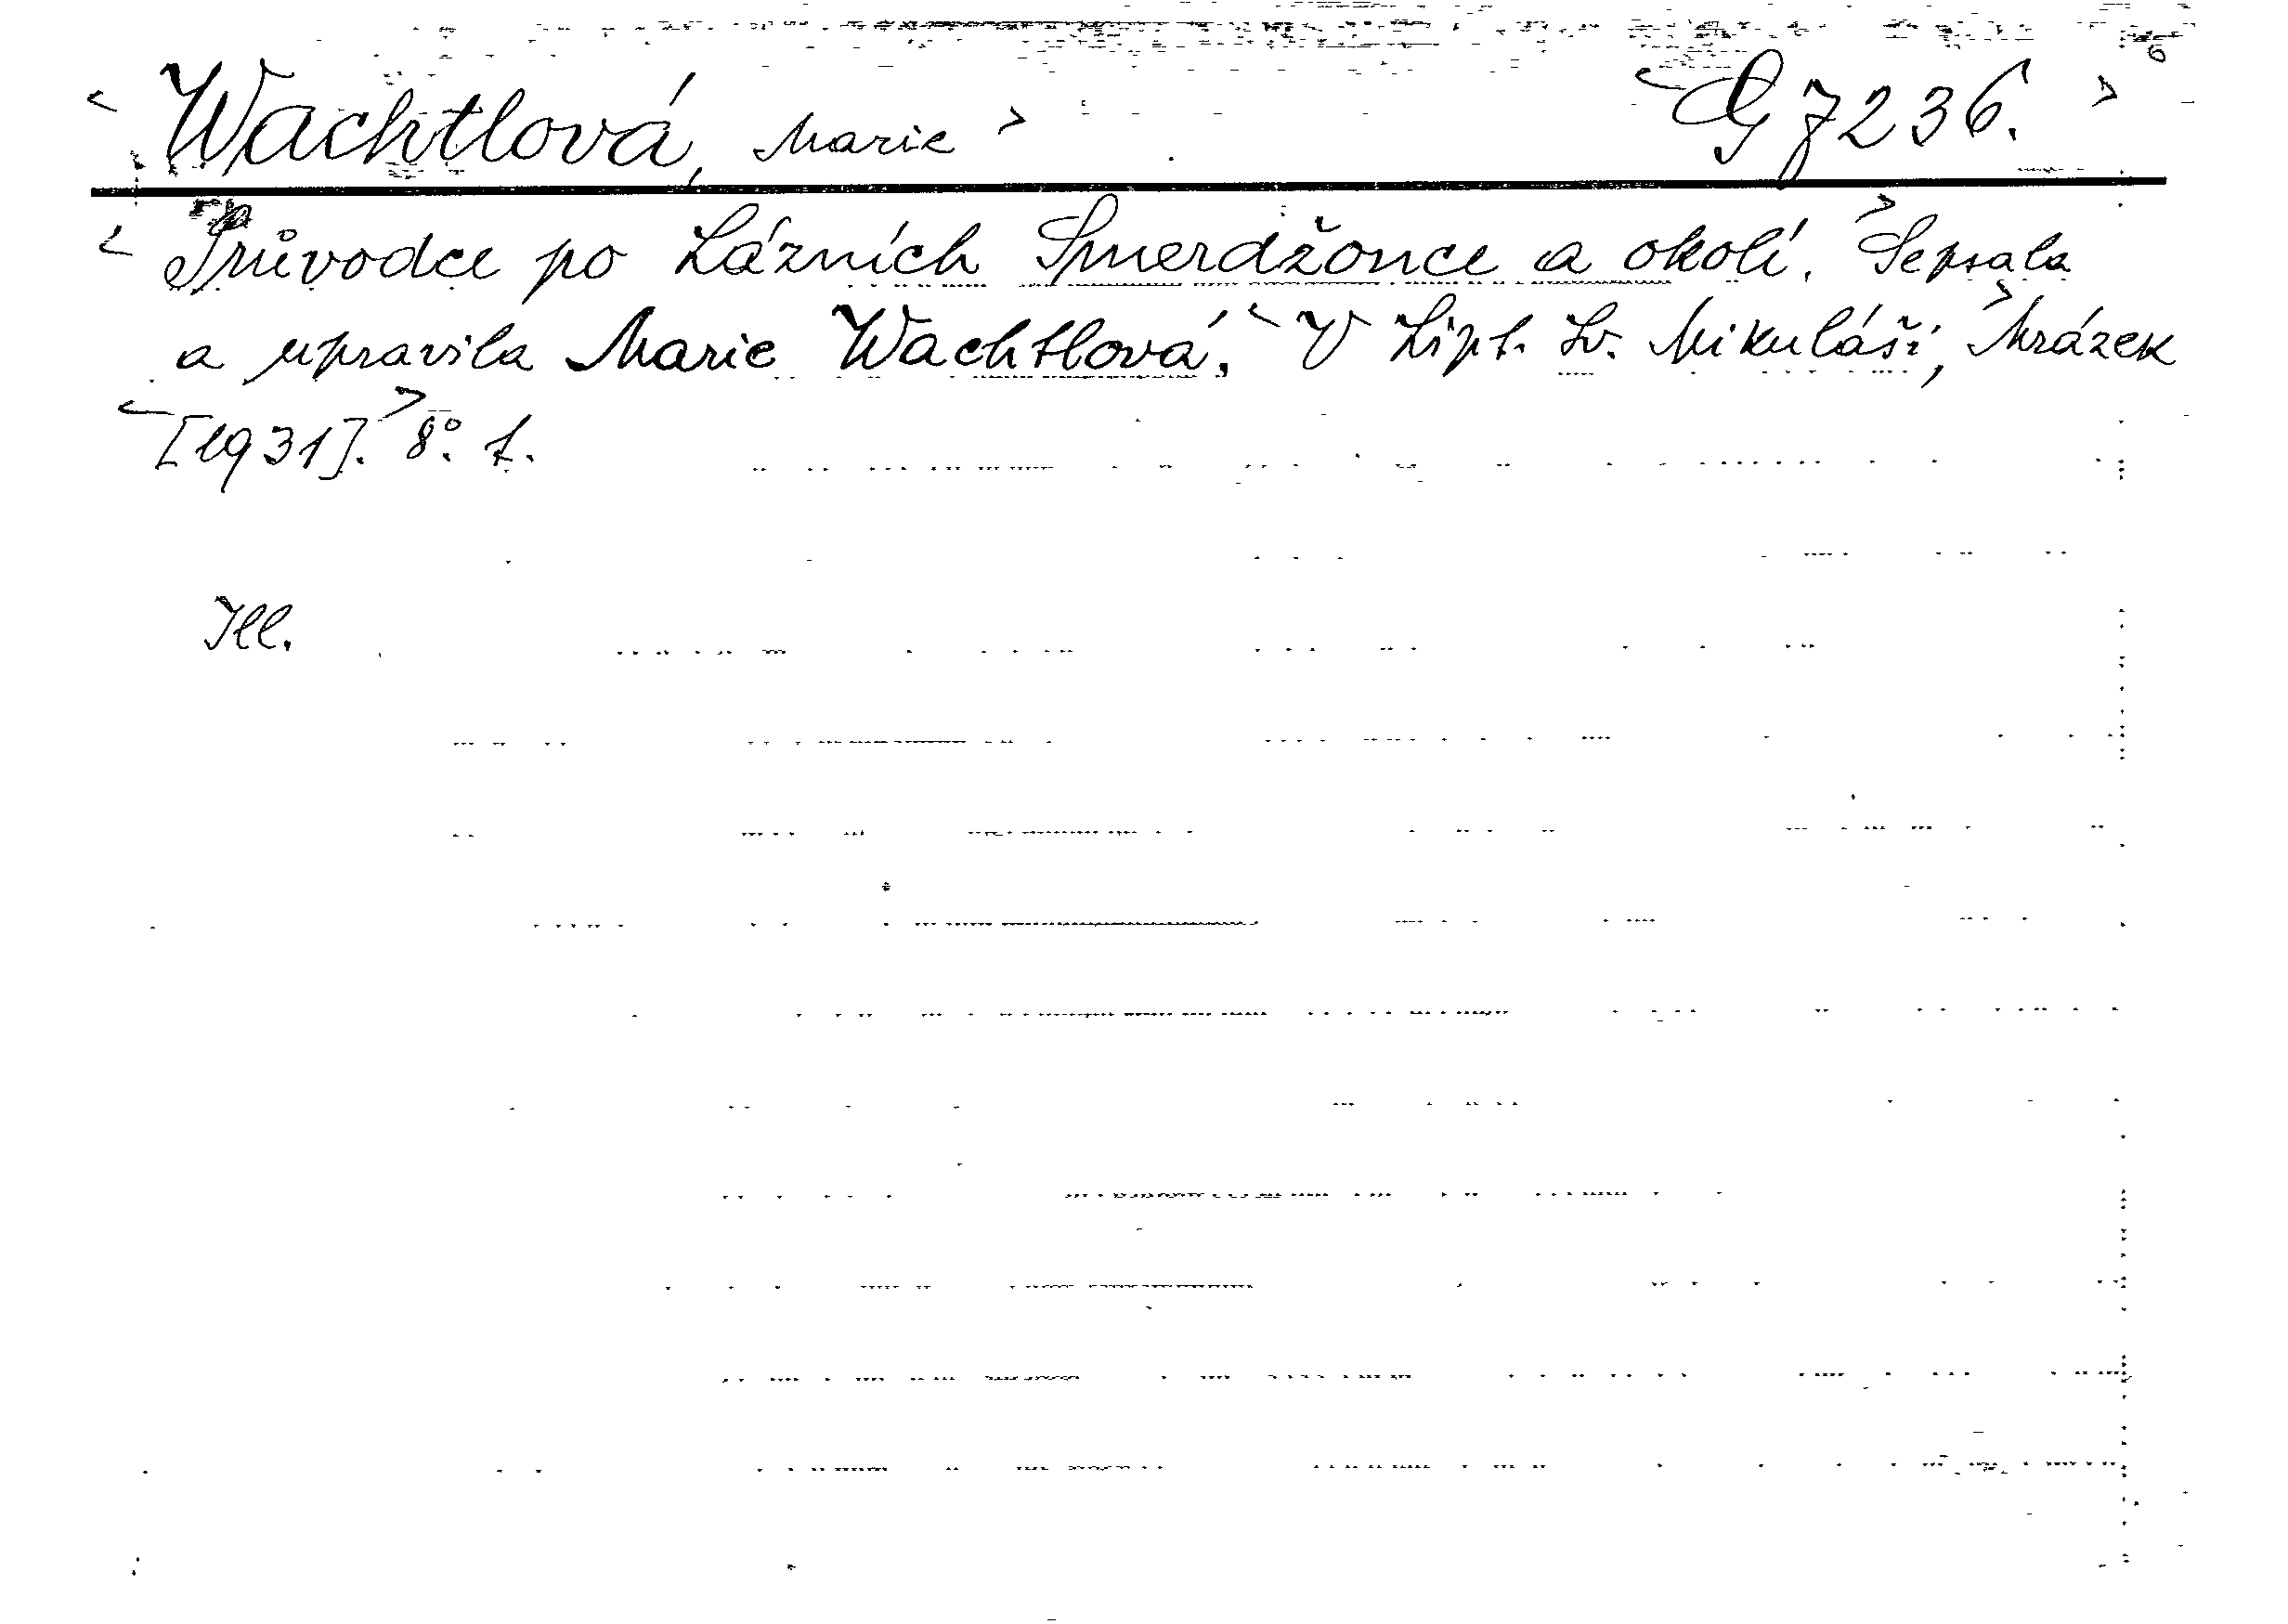 < Wachtlová, Marie > < G 7236. >
< Průvodce po Lázních Smerdžonce a okolí. > Sepsala
a upravila Marie Wachtlová. < V Lipt. Sv. Mikuláši, > Mrázek
< [1931]. > 8°. f.
Ill.